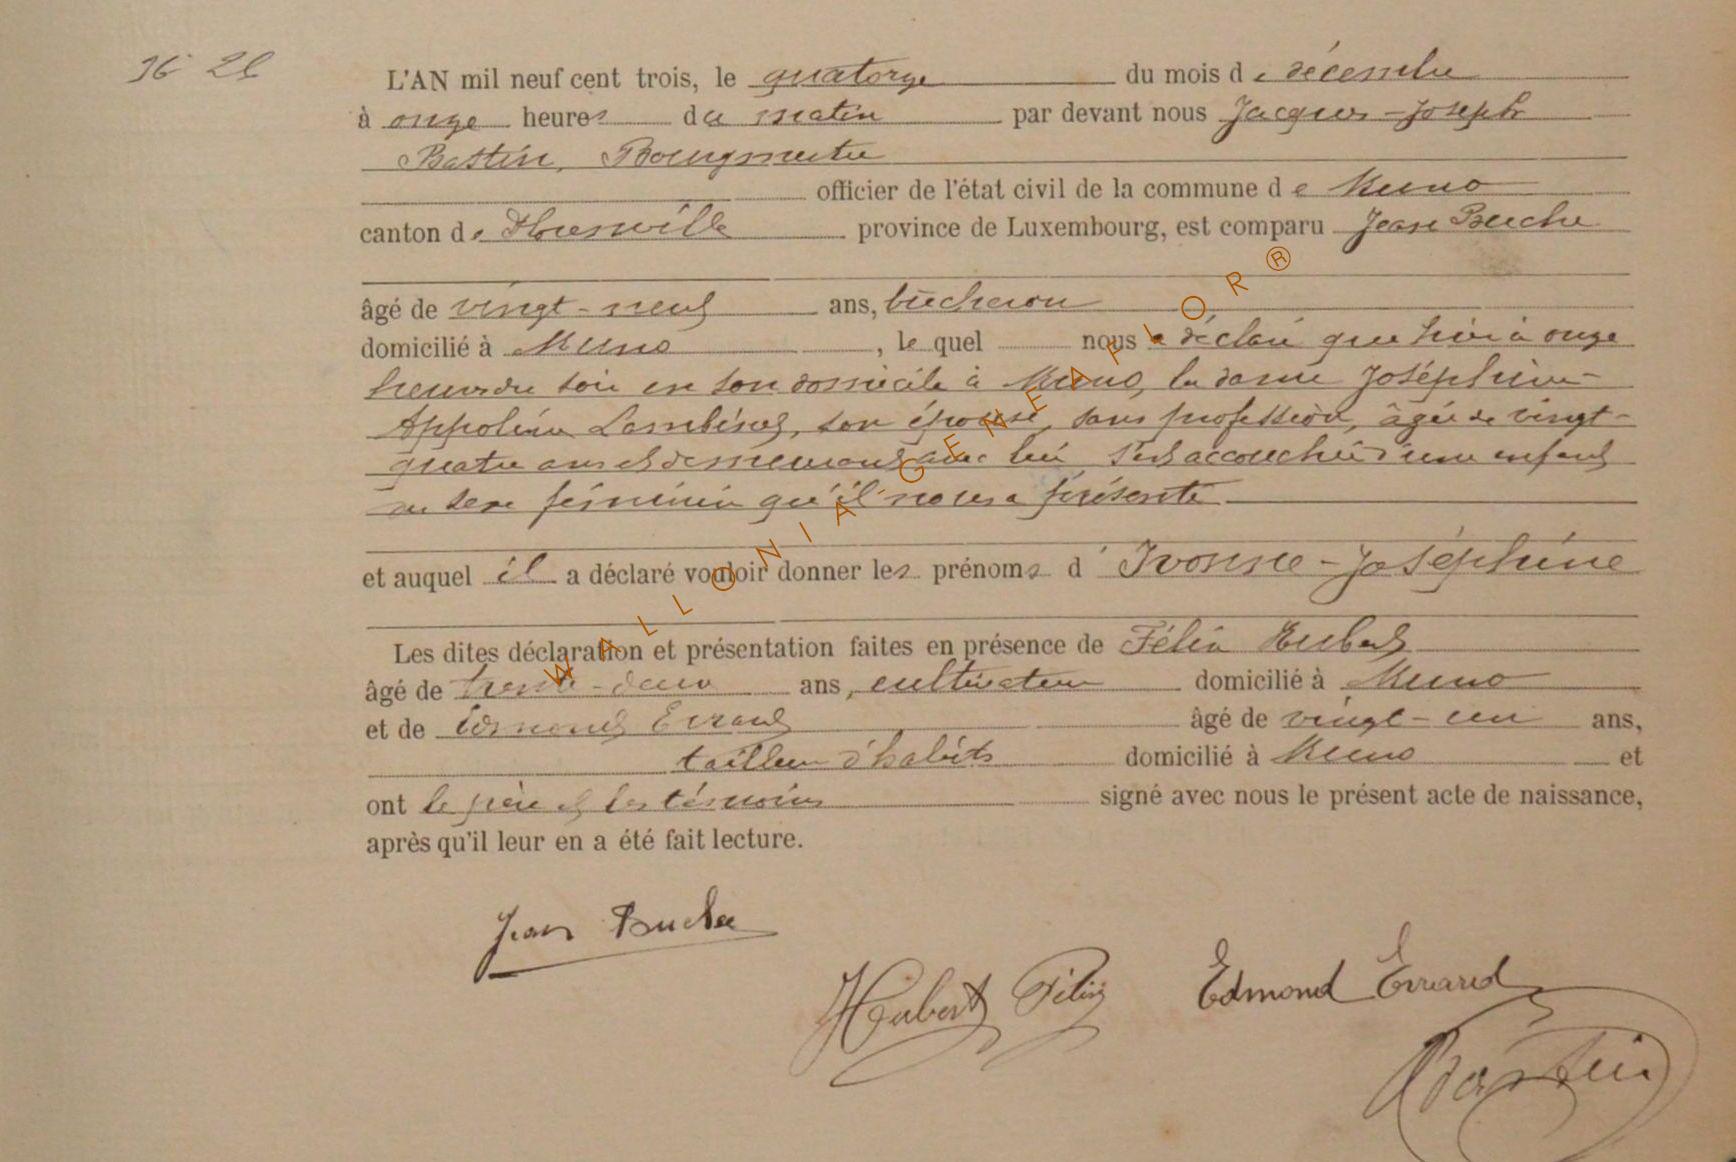 L'AN mil neuf cent trois, le quatorze du mois de décembre
à onze heures du matin par devant nous Jacques-Joseph
Bastin, Bourgmestre
officier de l'état civil de la commune de Muno
canton de Florenville province de Luxembourg, est comparu Jean Buche
âgé de vingt-neuf ans, bûcheron
domicilié à Muno, le quel nous a déclaré que hier à onze
heures du soir en son domicile à Muno, la dame Joséphine-
Appoline Lambinet, son épouse, sans profession, âgée de vingt-
quatre ans et demeurant avec lui s'est accouchée d'un enfant
du sexe féminin qu'il nous a présenté
et auquel il a déclaré vouloir donner les prénoms d'Ivonne-Joséphine
Les dites déclaration et présentation faites en présence de Félix Hubert
âgé de trente-deux ans, cultivateur domicilié à Muno
et de Edmond Errard âgé de vingt-un ans,
tailleur d'habits domicilié à Muno et
ont le père et les témoins signé avec nous le présent acte de naissance,
après qu'il leur en a été fait lecture.
Jean Buche
Hubert Félix
Edmond Errard
Bastin
WALLONIA-GENEAFLOR®